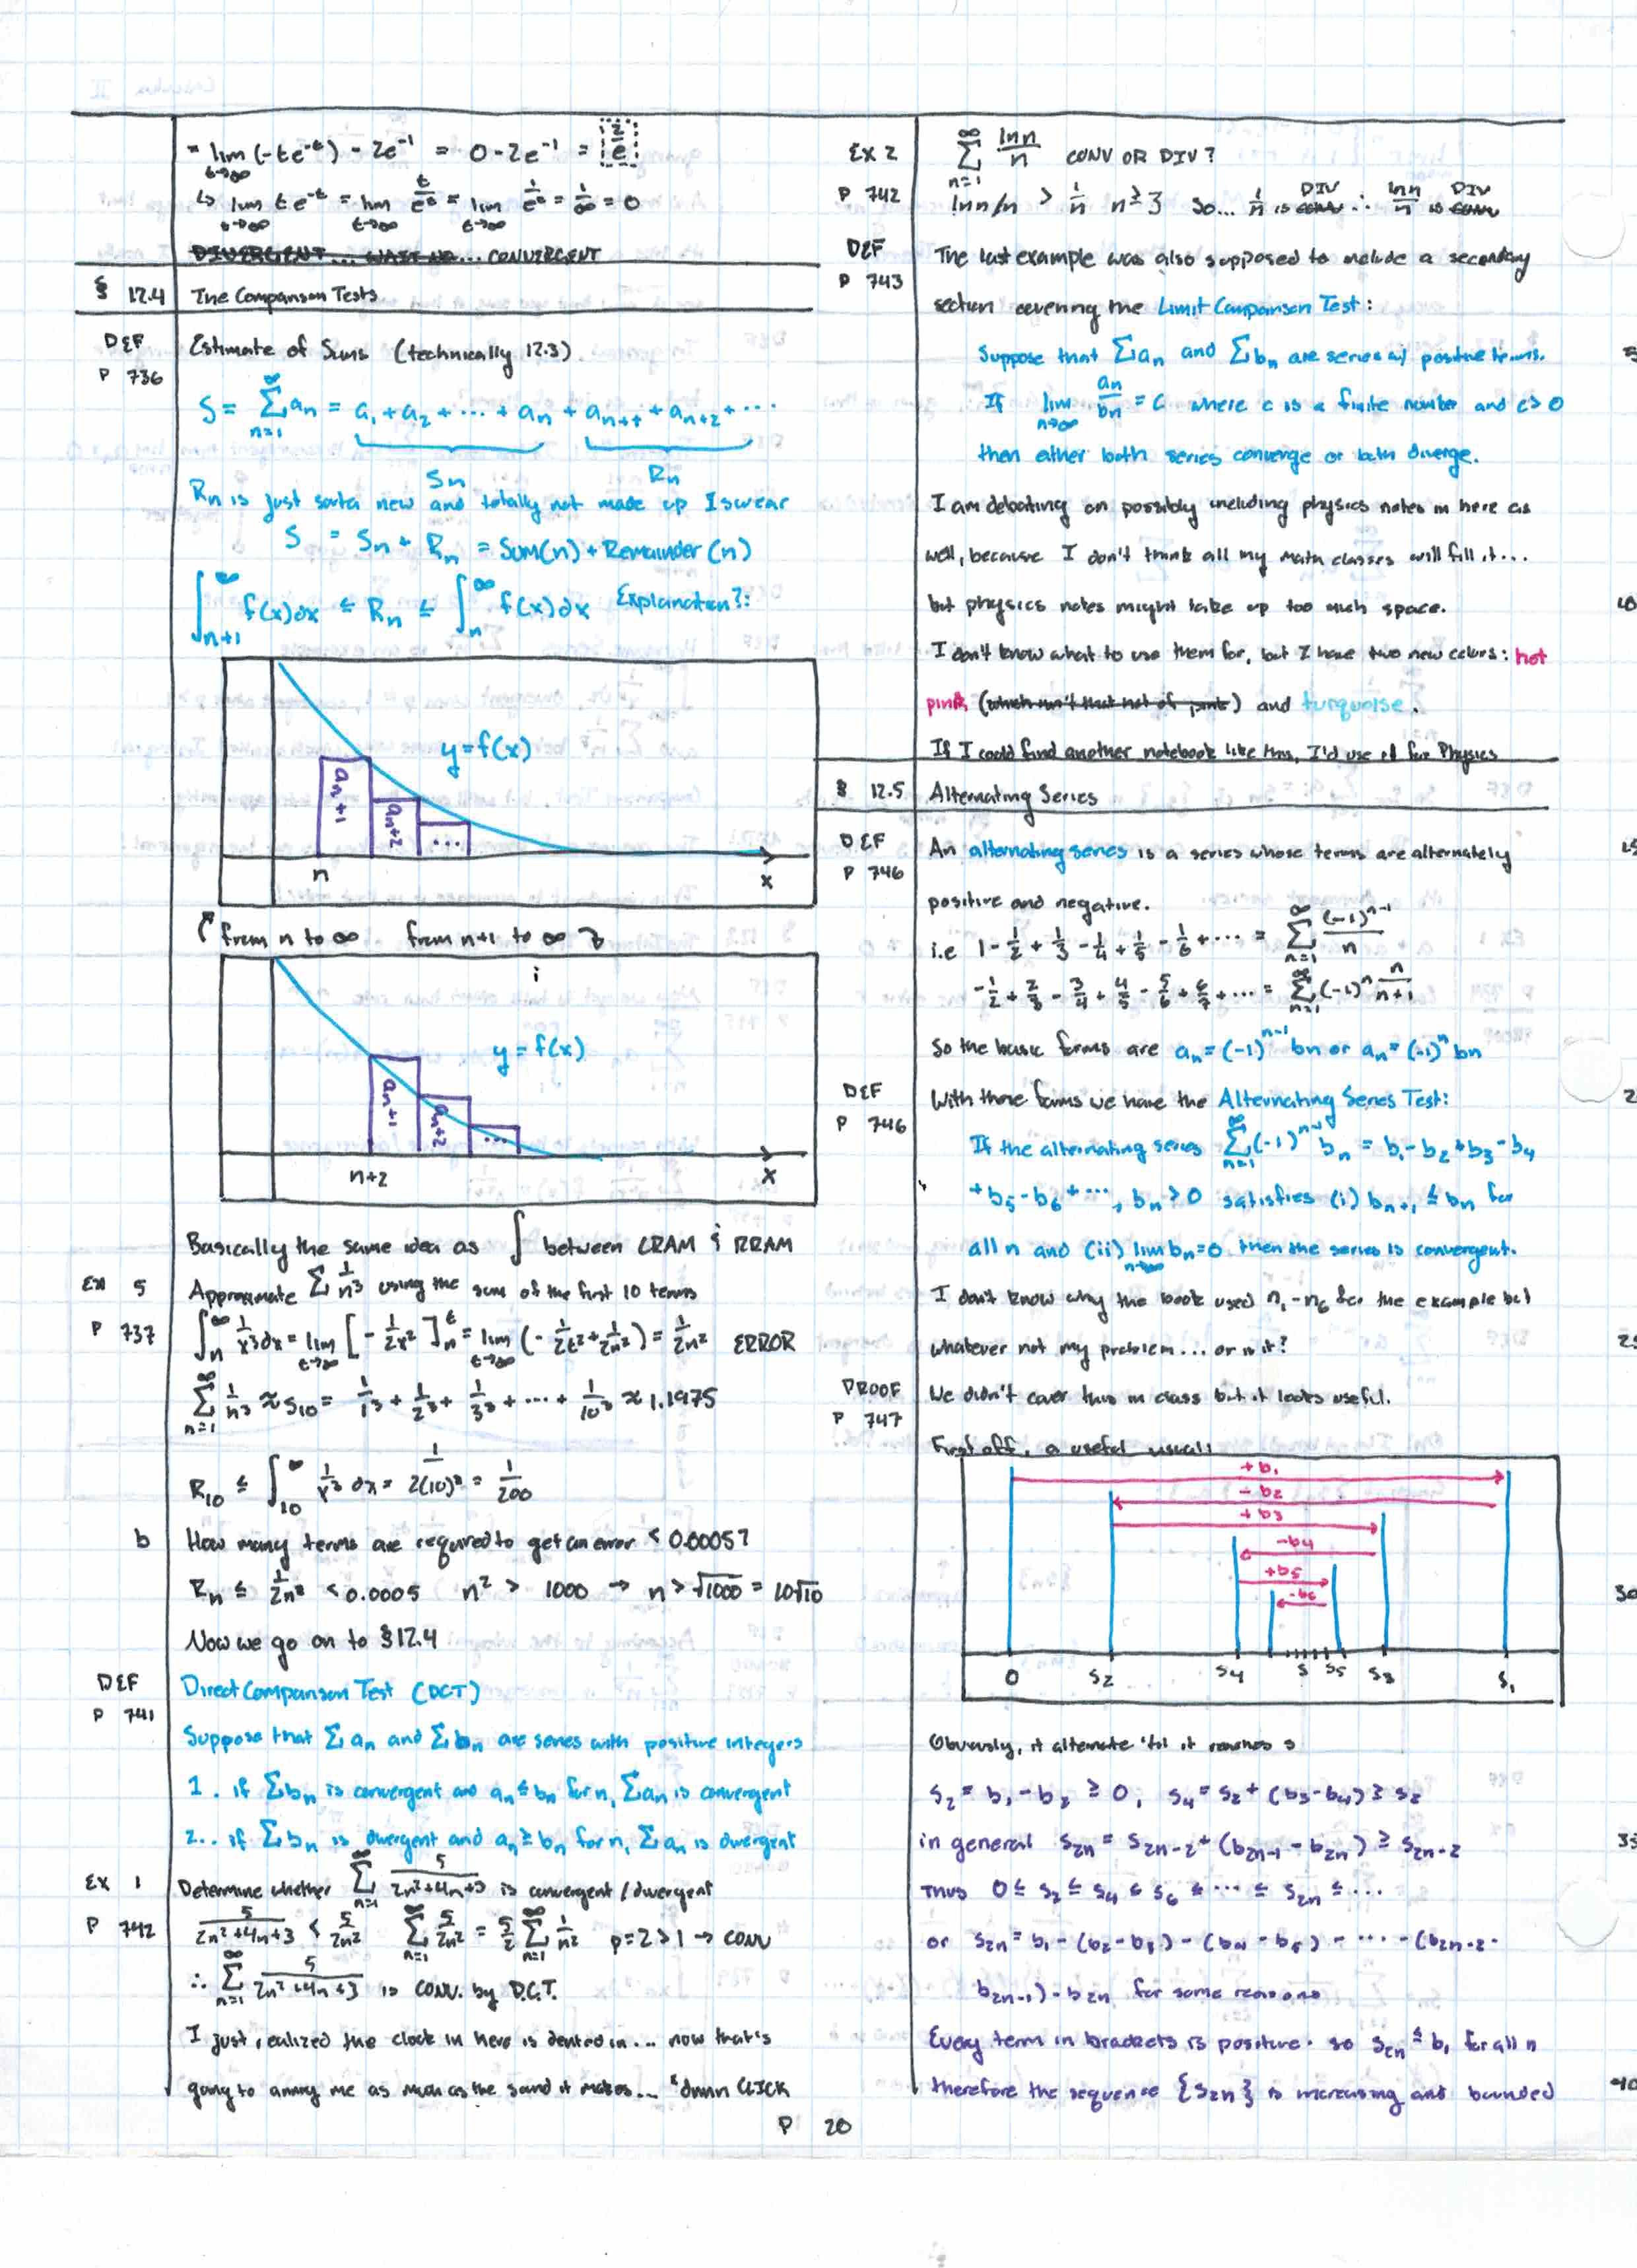 = lim t→∞ (-te^-t) - 2e^-1 = 0 - 2e^-1 = 2/e
↳ lim t→∞ te^-t = lim t→∞ t/e^t = lim t→∞ 1/e^t = 1/∞ = 0
DIVERGENT... WAIT NO... CONVERGENT
§ 12.4 The Comparison Tests
DEF Estimate of Sums (technically 12.3)
P 736
S = ∞ Σ n=1 an = a1 + a2 + ... + an + an+1 + an+2 + ...
Sn Rn
Rn is just sorta new and totally not made up I swear
S = Sn + Rn = Sum(n) + Remainder(n)
∫n+1^∞ f(x)dx ≤ Rn ≤ ∫n^∞ f(x)dx Explanation?:
y=f(x)
an+1 an+2 ...
n x
↱ from n to ∞ from n+1 to ∞ ↴
y=f(x)
an+1 an+2 ...
n+2 x
Basically the same idea as ∫ between LRAM & RRAM
Ex 5 Approximate Σ 1/n³ using the sum of the first 10 terms
P 737 ∫n^∞ 1/x³ dx = lim t→∞ [-1/2x²]n^t = lim t→∞ (-1/2t² + 1/2n²) = 1/2n² ERROR
∞ Σ n=1 1/n³ ≈ S10 = 1/1³ + 1/2³ + 1/3³ + ... + 1/10³ ≈ 1.1975
R10 ≤ ∫10^∞ 1/x³ dx = 1/2(10)² = 1/200
b How many terms are required to get an error < 0.0005?
Rn ≤ 1/2n² < 0.0005 n² > 1000 → n > √1000 = 10√10
Now we go on to §12.4
DEF Direct Comparison Test (DCT)
P 741
Suppose that Σan and Σbn are series with positive integers
1. if Σbn is convergent and an ≤ bn for n, Σan is convergent
2.. if Σbn is divergent and an ≥ bn for n, Σan is divergent
Ex 1 Determine whether ∞ Σ n=1 5/2n²+4n+3 is convergent/divergent
P 742 5/2n²+4n+3 < 5/2n² ∞ Σ n=1 5/2n² = 5/2 ∞ Σ n=1 1/n² p=2>1 → CONV
∴ ∞ Σ n=1 5/2n²+4n+3 is CONV. by D.C.T.
I just realized the clock in here is dented in... now that's
going to annoy me as much as the sound it makes... *dmn CLICK
Ex 2 ∞ Σ n=1 ln n/n CONV OR DIV?
P 742 ln n/n > 1/n n≥3 so... 1/n is CONV DIV ∴ ln n/n is CONV DIV
DEF The last example was also supposed to include a secondary
P 743
section covering the Limit Comparison Test:
Suppose that Σan and Σbn are series w/ positive terms.
If lim n→∞ an/bn = c where c is a finite number and c>0
then either both series converge or both diverge.
I am debating on possibly including physics notes in here as
well, because I don't think all my math classes will fill it...
but physics notes might take up too much space.
I don't know what to use them for, but I have two new colors: hot
pink (which isn't that hot of pink) and turquoise.
If I could find another notebook like this, I'd use it for Physics
§ 12.5 Alternating Series
DEF An alternating series is a series whose terms are alternately
P 746
positive and negative.
i.e 1 - 1/2 + 1/3 - 1/4 + 1/5 - 1/6 + ... = ∞ Σ n=1 (-1)^n-1/n
-1/2 + 2/3 - 3/4 + 4/5 - 5/6 + 6/7 + ... = ∞ Σ n=1 (-1)^n n/n+1
So the basic forms are an = (-1)^n-1 bn or an = (-1)^n bn
DEF With those forms we have the Alternating Series Test:
P 746
If the alternating series ∞ Σ n=1 (-1)^n-1 bn = b1 - b2 + b3 - b4
+ b5 - b6 + ..., bn > 0 satisfies (i) bn+1 ≤ bn for
all n and (ii) lim n→∞ bn = 0 then the series is convergent.
I don't know why the book used n1 - n6 for the example but
whatever not my problem... or is it?
PROOF We didn't cover this in class but it looks useful.
P 747
First off, a useful visual:
+b1
-b2
+b3
-b4
+b5
-b6
0 S2 S4 S S5 S3 S1
Obviously, it alternate 'til it reaches s
S2 = b1 - b2 ≥ 0, S4 = S2 + (b3-b4) ≥ S2
in general S2n = S2n-2 + (b2n-1 - b2n) ≥ S2n-2
Thus 0 ≤ S2 ≤ S4 ≤ S6 ≤ ... ≤ S2n ≤ ...
or S2n = b1 - (b2-b3) - (b4-b5) - ... - (b2n-2 -
b2n-1) - b2n for some reason
Every term in brackets is positive. so S2n ≤ b1 for all n
therefore the sequence {S2n} is increasing and bounded
5
10
15
2
25
30
35
40
P 20